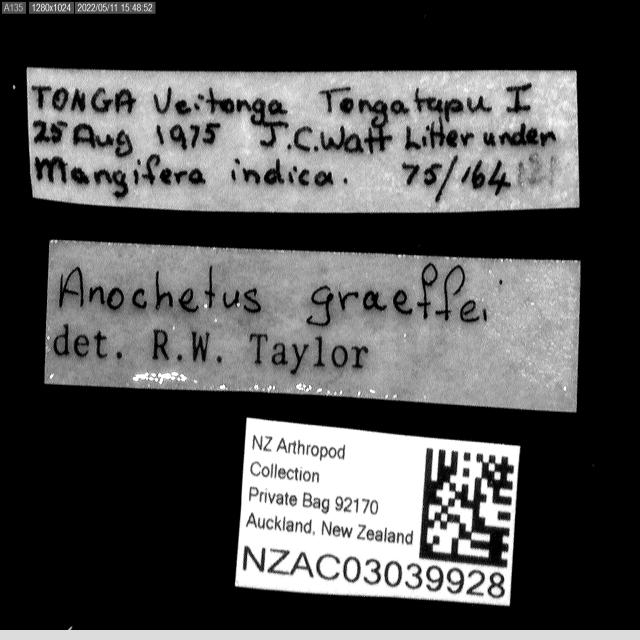 A135 1280x1024 2022/05/11 15:48:52
TONGA Veitonga Tongatapu I
25 Aug 1975 J.C.Watt Litter under
Mangifera indica. 75/164
Anochetus graeffei
det. R.W. Taylor
NZ Arthropod
Collection
Private Bag 92170
Auckland, New Zealand
NZAC03039928